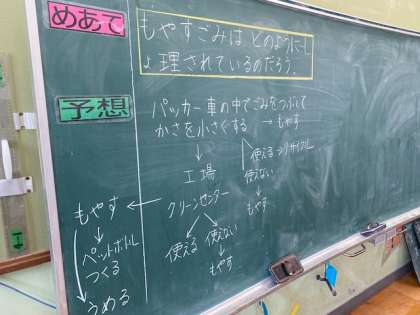 めあて
もやすごみは どのように し
ょ理されているのだろう。
予想
パッカー車の中でごみをつぶして
かさを小さくする → もやす
↓
使える→リサイクル
使えない
↓
もやす
工場
クリーンセンター
使える 使えない
↓
もやす
もやす ←
↓
ペットボトル
つくる
うめる